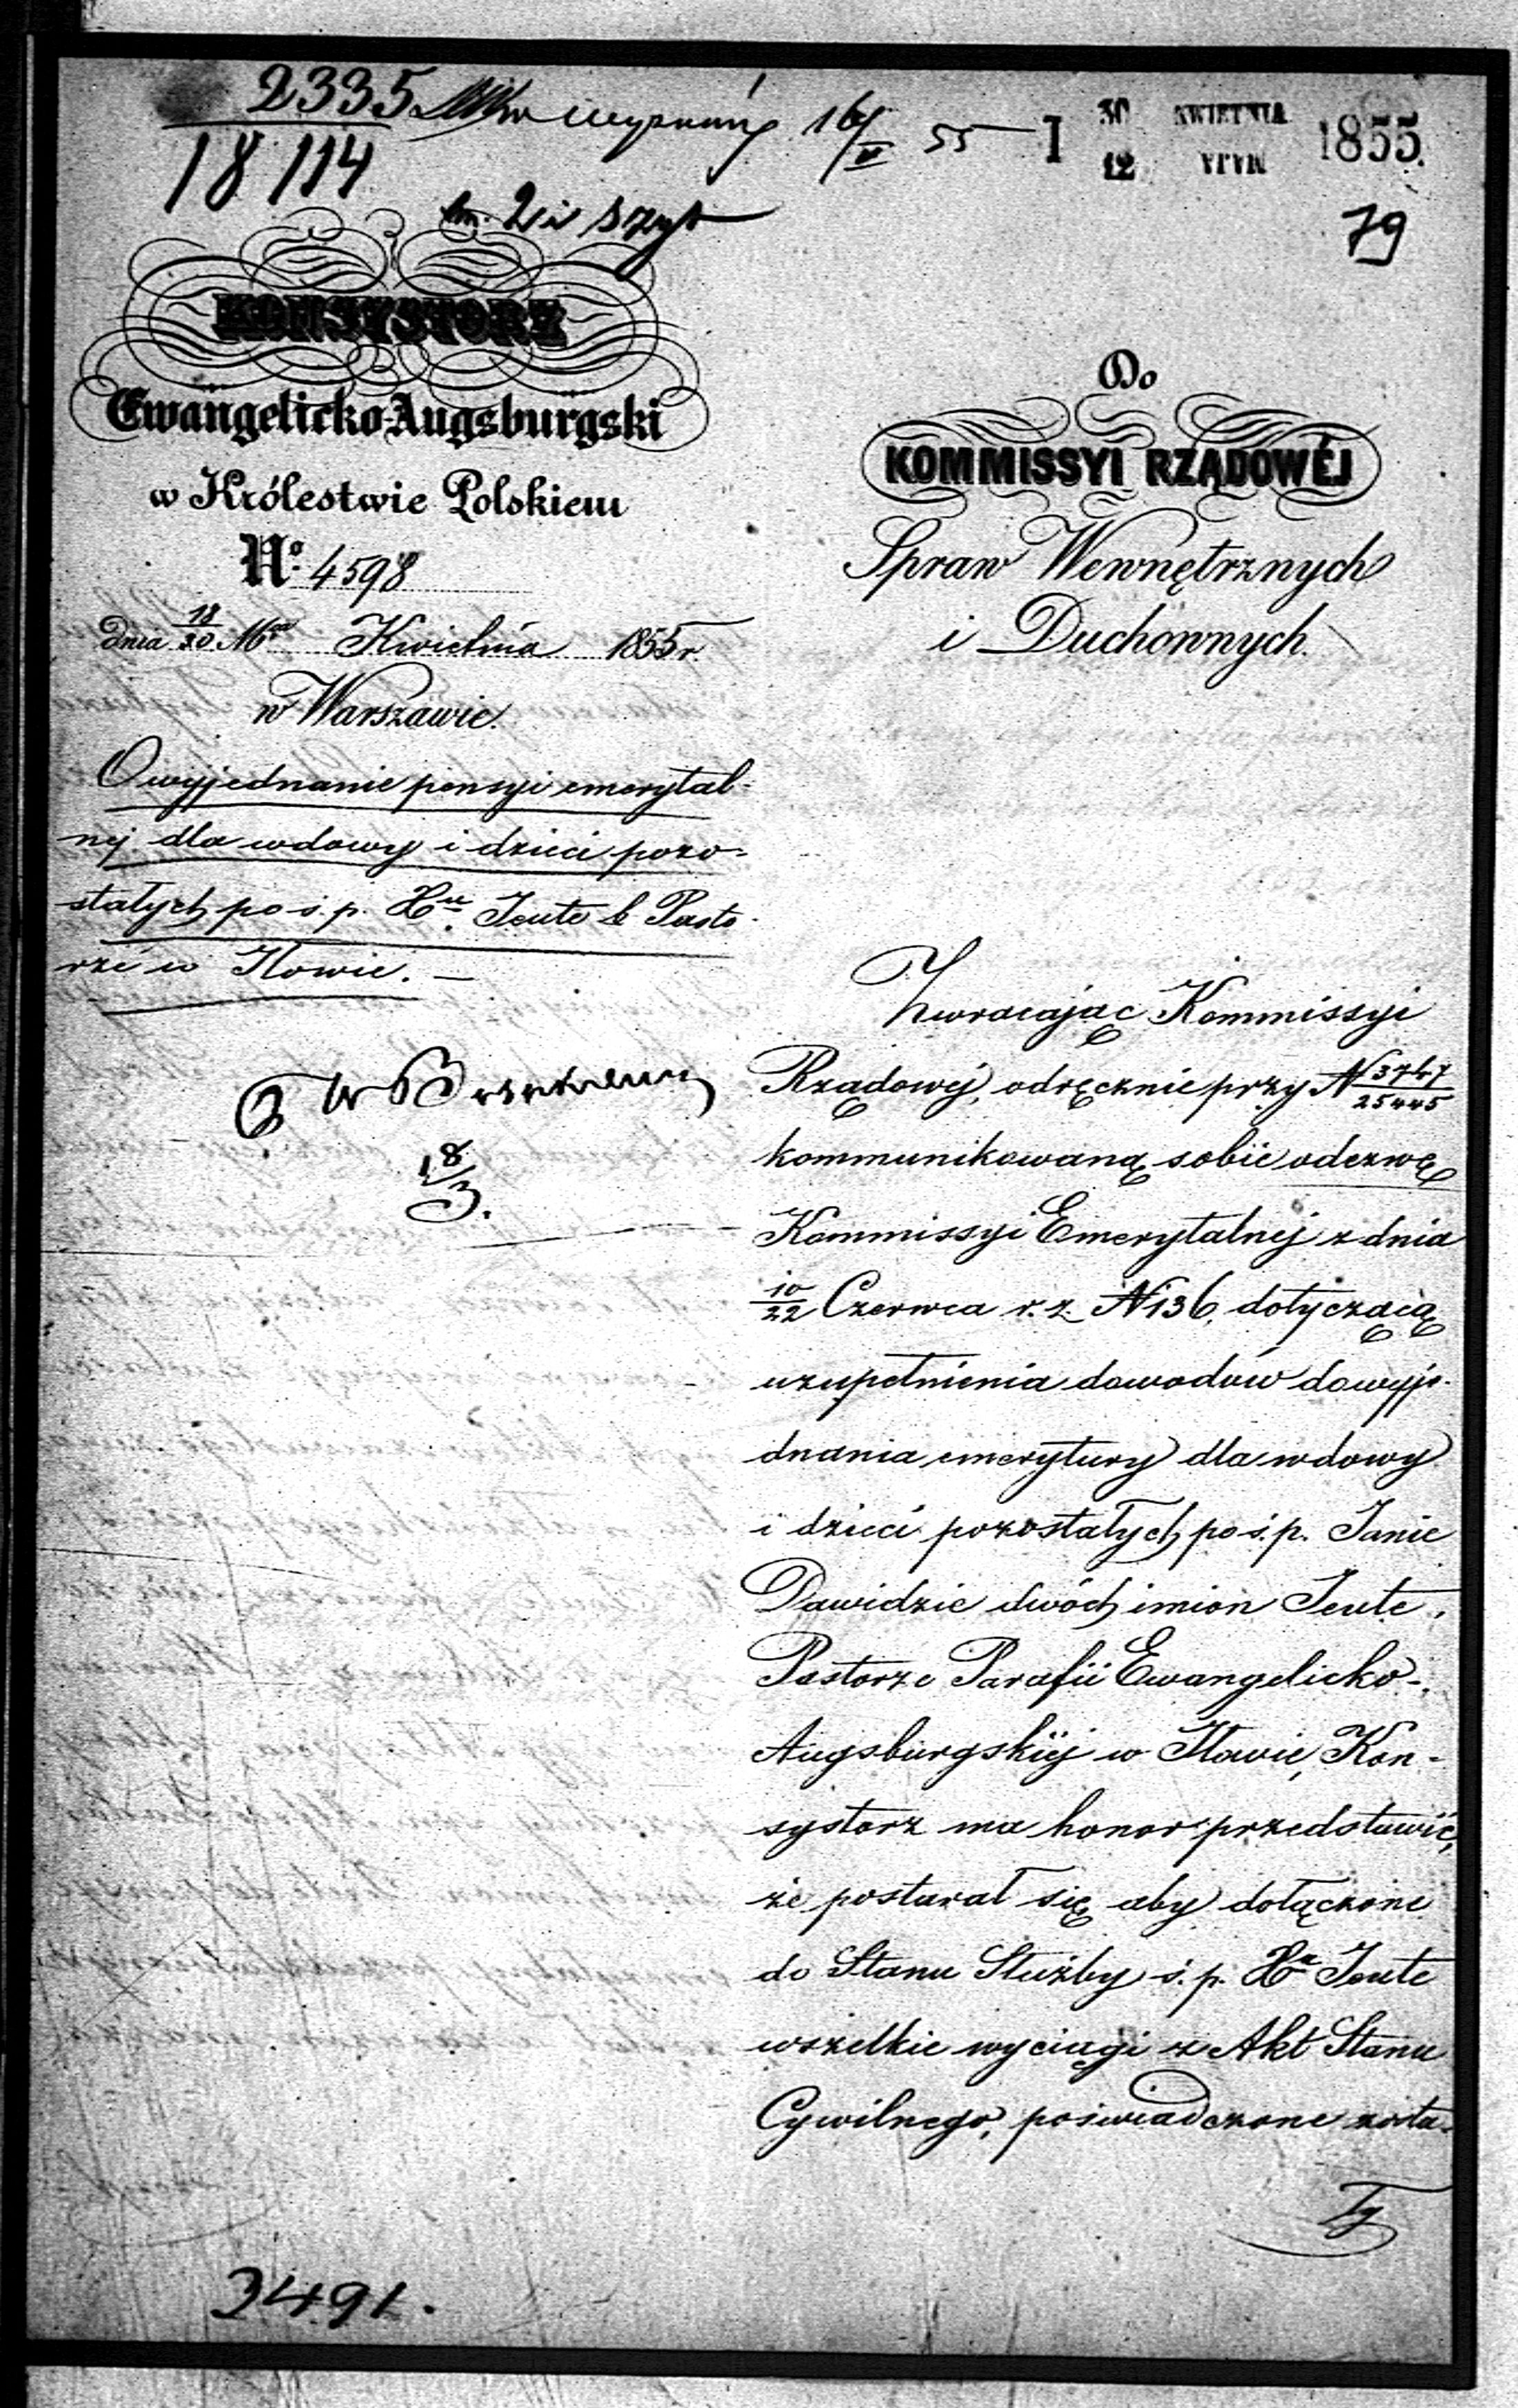 2335
18114
1855.
I 30 KWIETNIA
12 MAJA
79
KONSYSTORZ
Ewangelicko-Augsburgski
w Królestwie Polskiem
No. 4598
Dnia 18/30 Mca Kwietnia 1855 r.
w Warszawie.
O wyjednanie pensyi emerytal-
nej dla wdowy i dzieci pozo-
stałych po ś.p. Xu. Jeute b Pasto-
rze w Iłowie. —
18/3.
Do
KOMMISSYI RZĄDOWÉJ
Spraw Wewnętrznych
i Duchownych.
Zwracając Kommissyi
Rządowej, odręcznie przy N 3747/25445
kommunikowaną sobie odezwę
Kommissyi Emerytalnej z dnia
10/22 Czerwca r.z. N 136, dotyczącą
uzupełnienia dowodów do wyje-
dnania emerytury dla wdowy
i dzieci pozostałych po ś.p. Janie
Dawidzie dwóch imion Jeute,
Pastorze Parafii Ewangelicko-
Augsburgskiej w Iłowie, Kon-
systorz ma honor przedstawić,
że postarał się aby dołączone
do Stanu Służby ś.p. Xa Jeute
wszelkie wyciągi z Akt Stanu
Cywilnego, poświadczone zosta-
ły
3491.